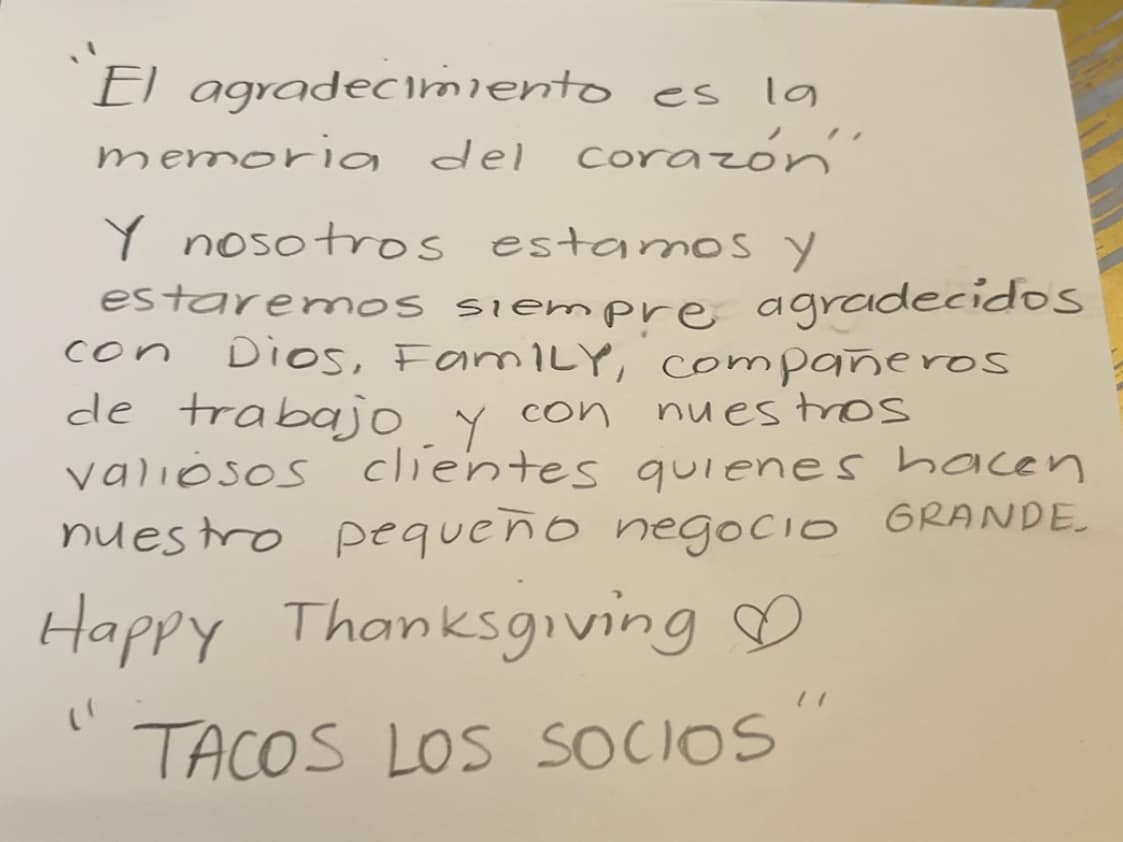 "El agradecimiento es la
memoria del corazón"
Y nosotros estamos y
estaremos siempre agradecidos
con Dios, FamILY, compañeros
de trabajo y con nuestros
valiosos clientes quienes hacen
nuestro pequeño negocio GRANDE.
Happy Thanksgiving ♡
"TACOS LOS SOCIOS"